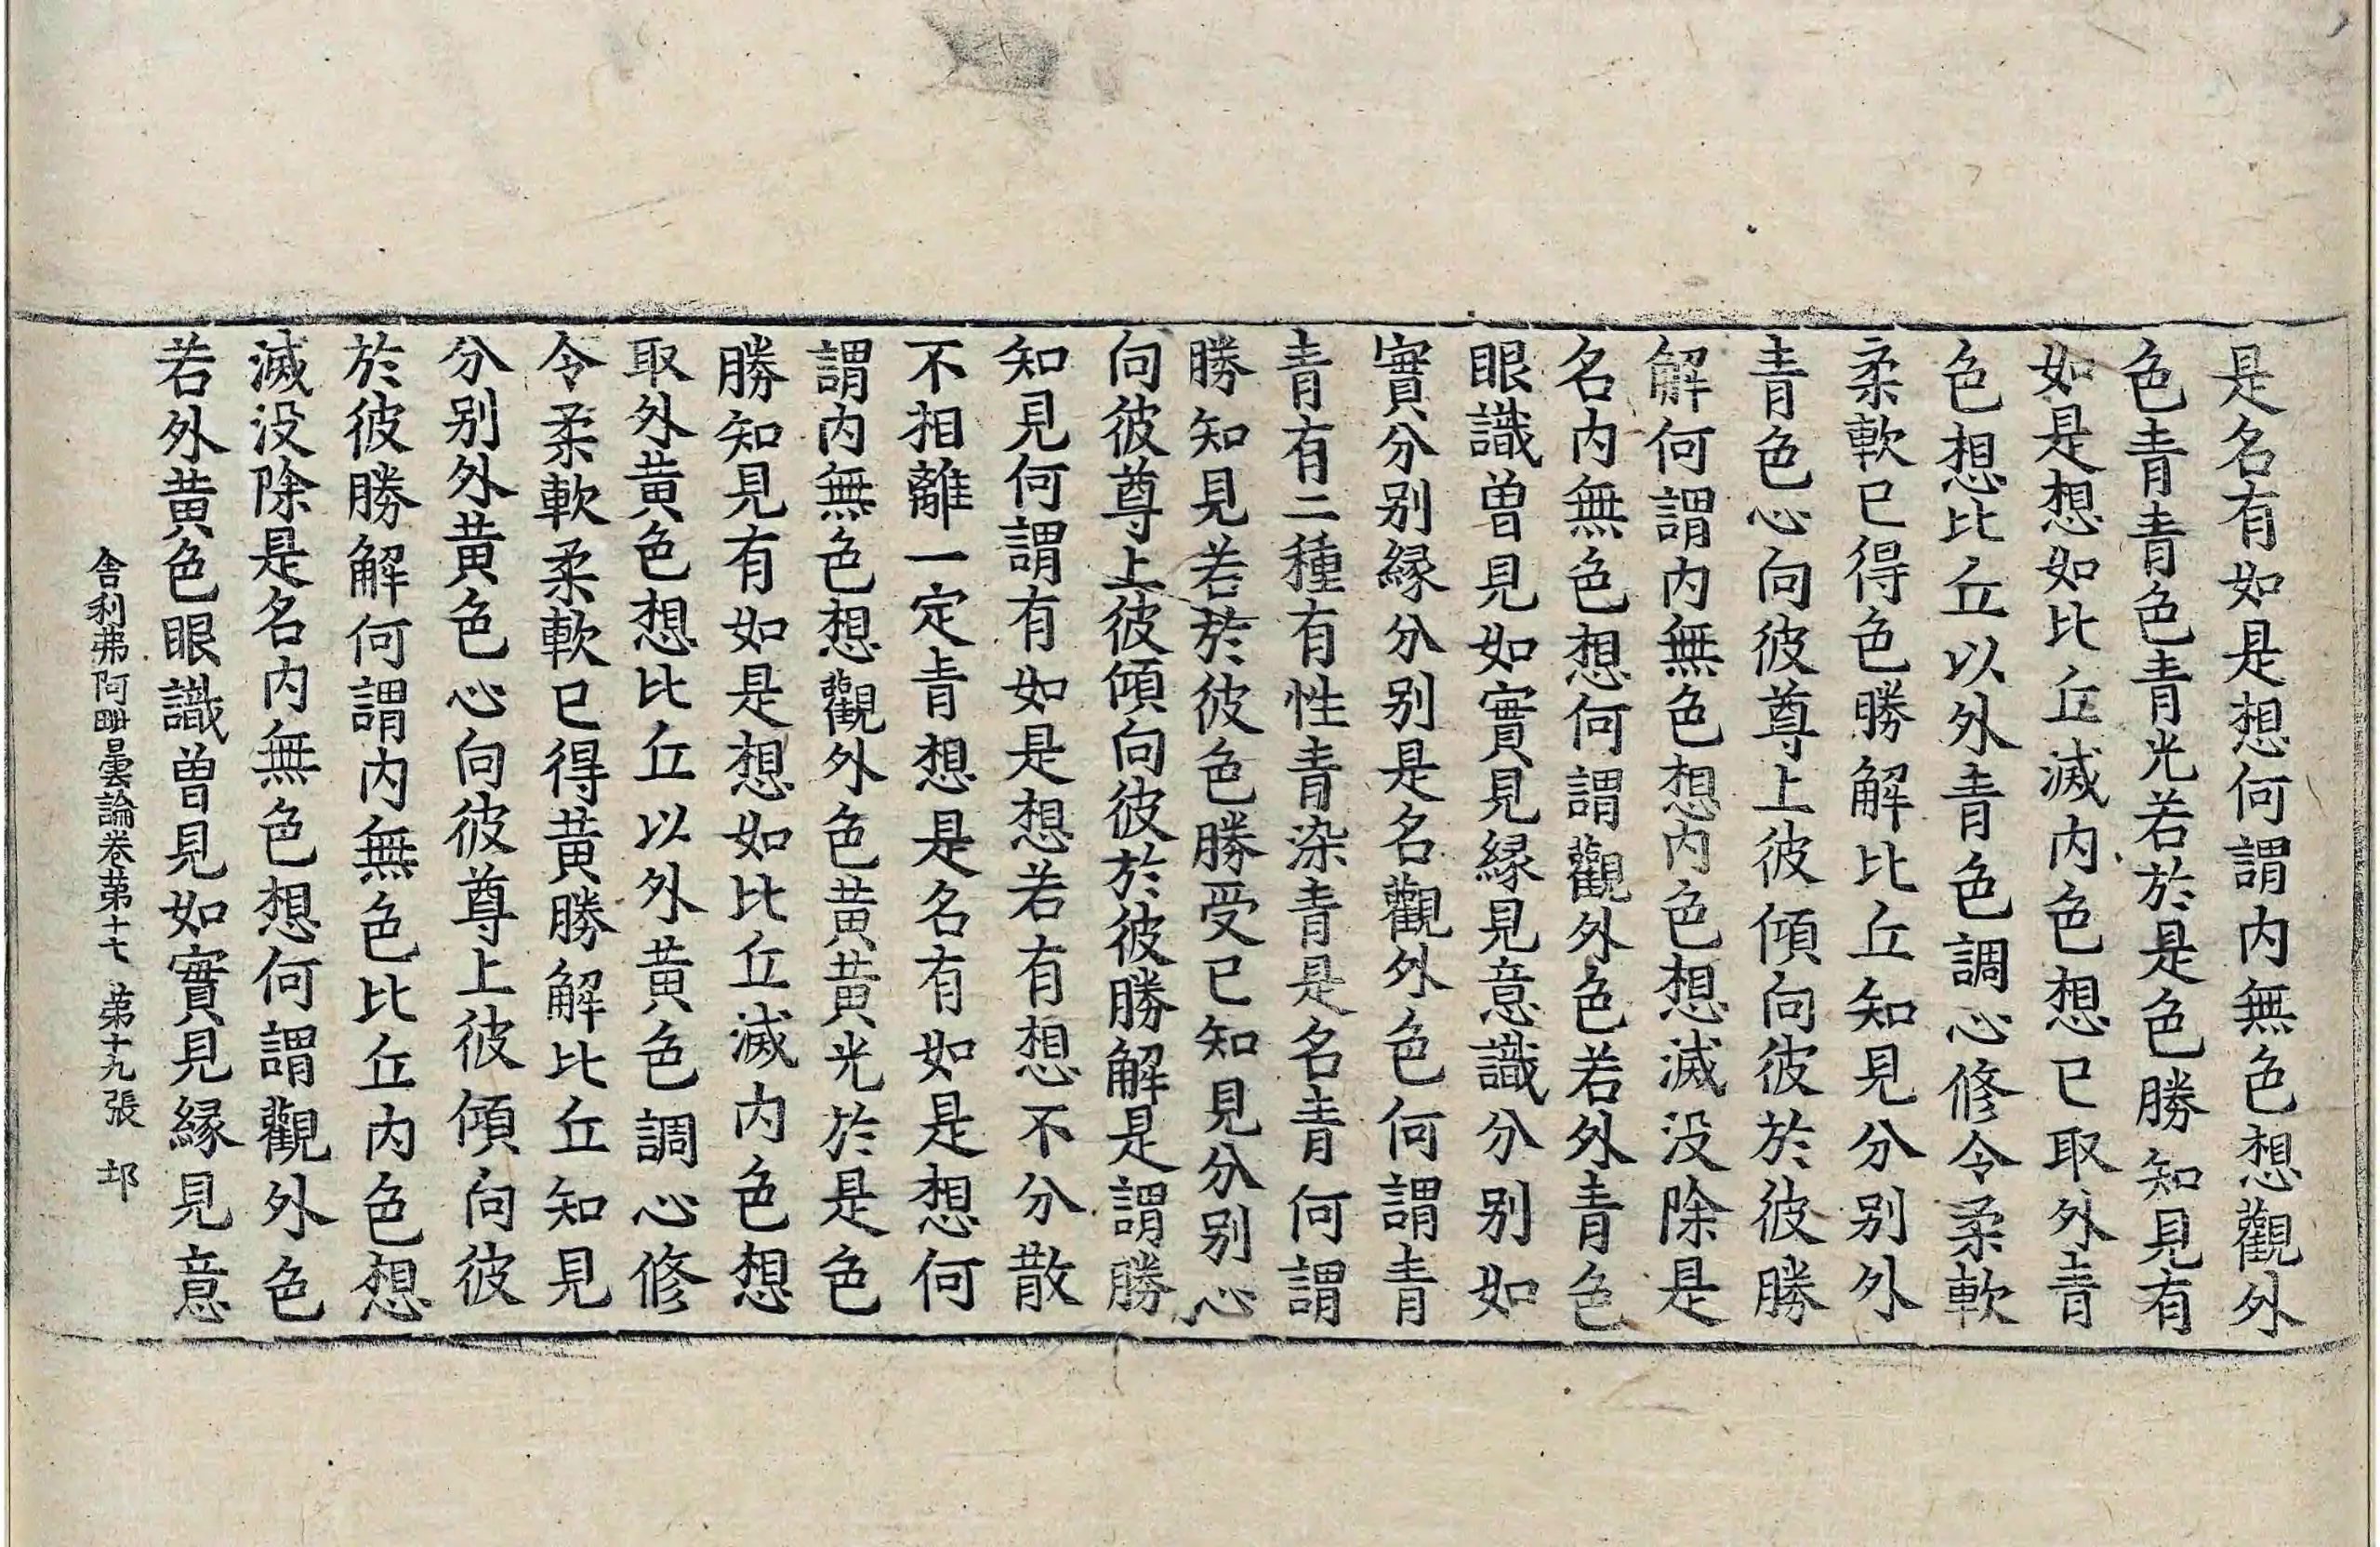 是名有如是想何謂内無色想觀外
色青青色青光若於是色勝知見有
如是想如比丘滅内色想已取外青
色想比丘以外青色調心修令柔軟
柔軟已得色勝解比丘知見分別外
青色心向彼尊上彼傾向彼於彼勝
解何謂内無色想内色想滅没除是
名内無色想何謂觀外色若外青色
眼識曾見如實見緣見意識分別如
實分別緣分別是名觀外色何謂青
青有二種有性青染青是名青何謂
勝知見若於彼色勝受已知見分別心
向彼尊上彼傾向彼於彼勝解是謂勝
知見何謂有如是想若有想不分散
不相離一定青想是名有如是想何
謂内無色想觀外色黄黄光於是色
勝知見有如是想如比丘滅内色想
取外黄色想比丘以外黄色調心修
令柔軟柔軟已得黄勝解比丘知見
分別外黄色心向彼尊上彼傾向彼
於彼勝解何謂内無色比丘内色想
滅没除是名内無色想何謂觀外色
若外黄色眼識曾見如實見緣見意
舎利弗阿毗曇論卷第十七 第十九張 邛